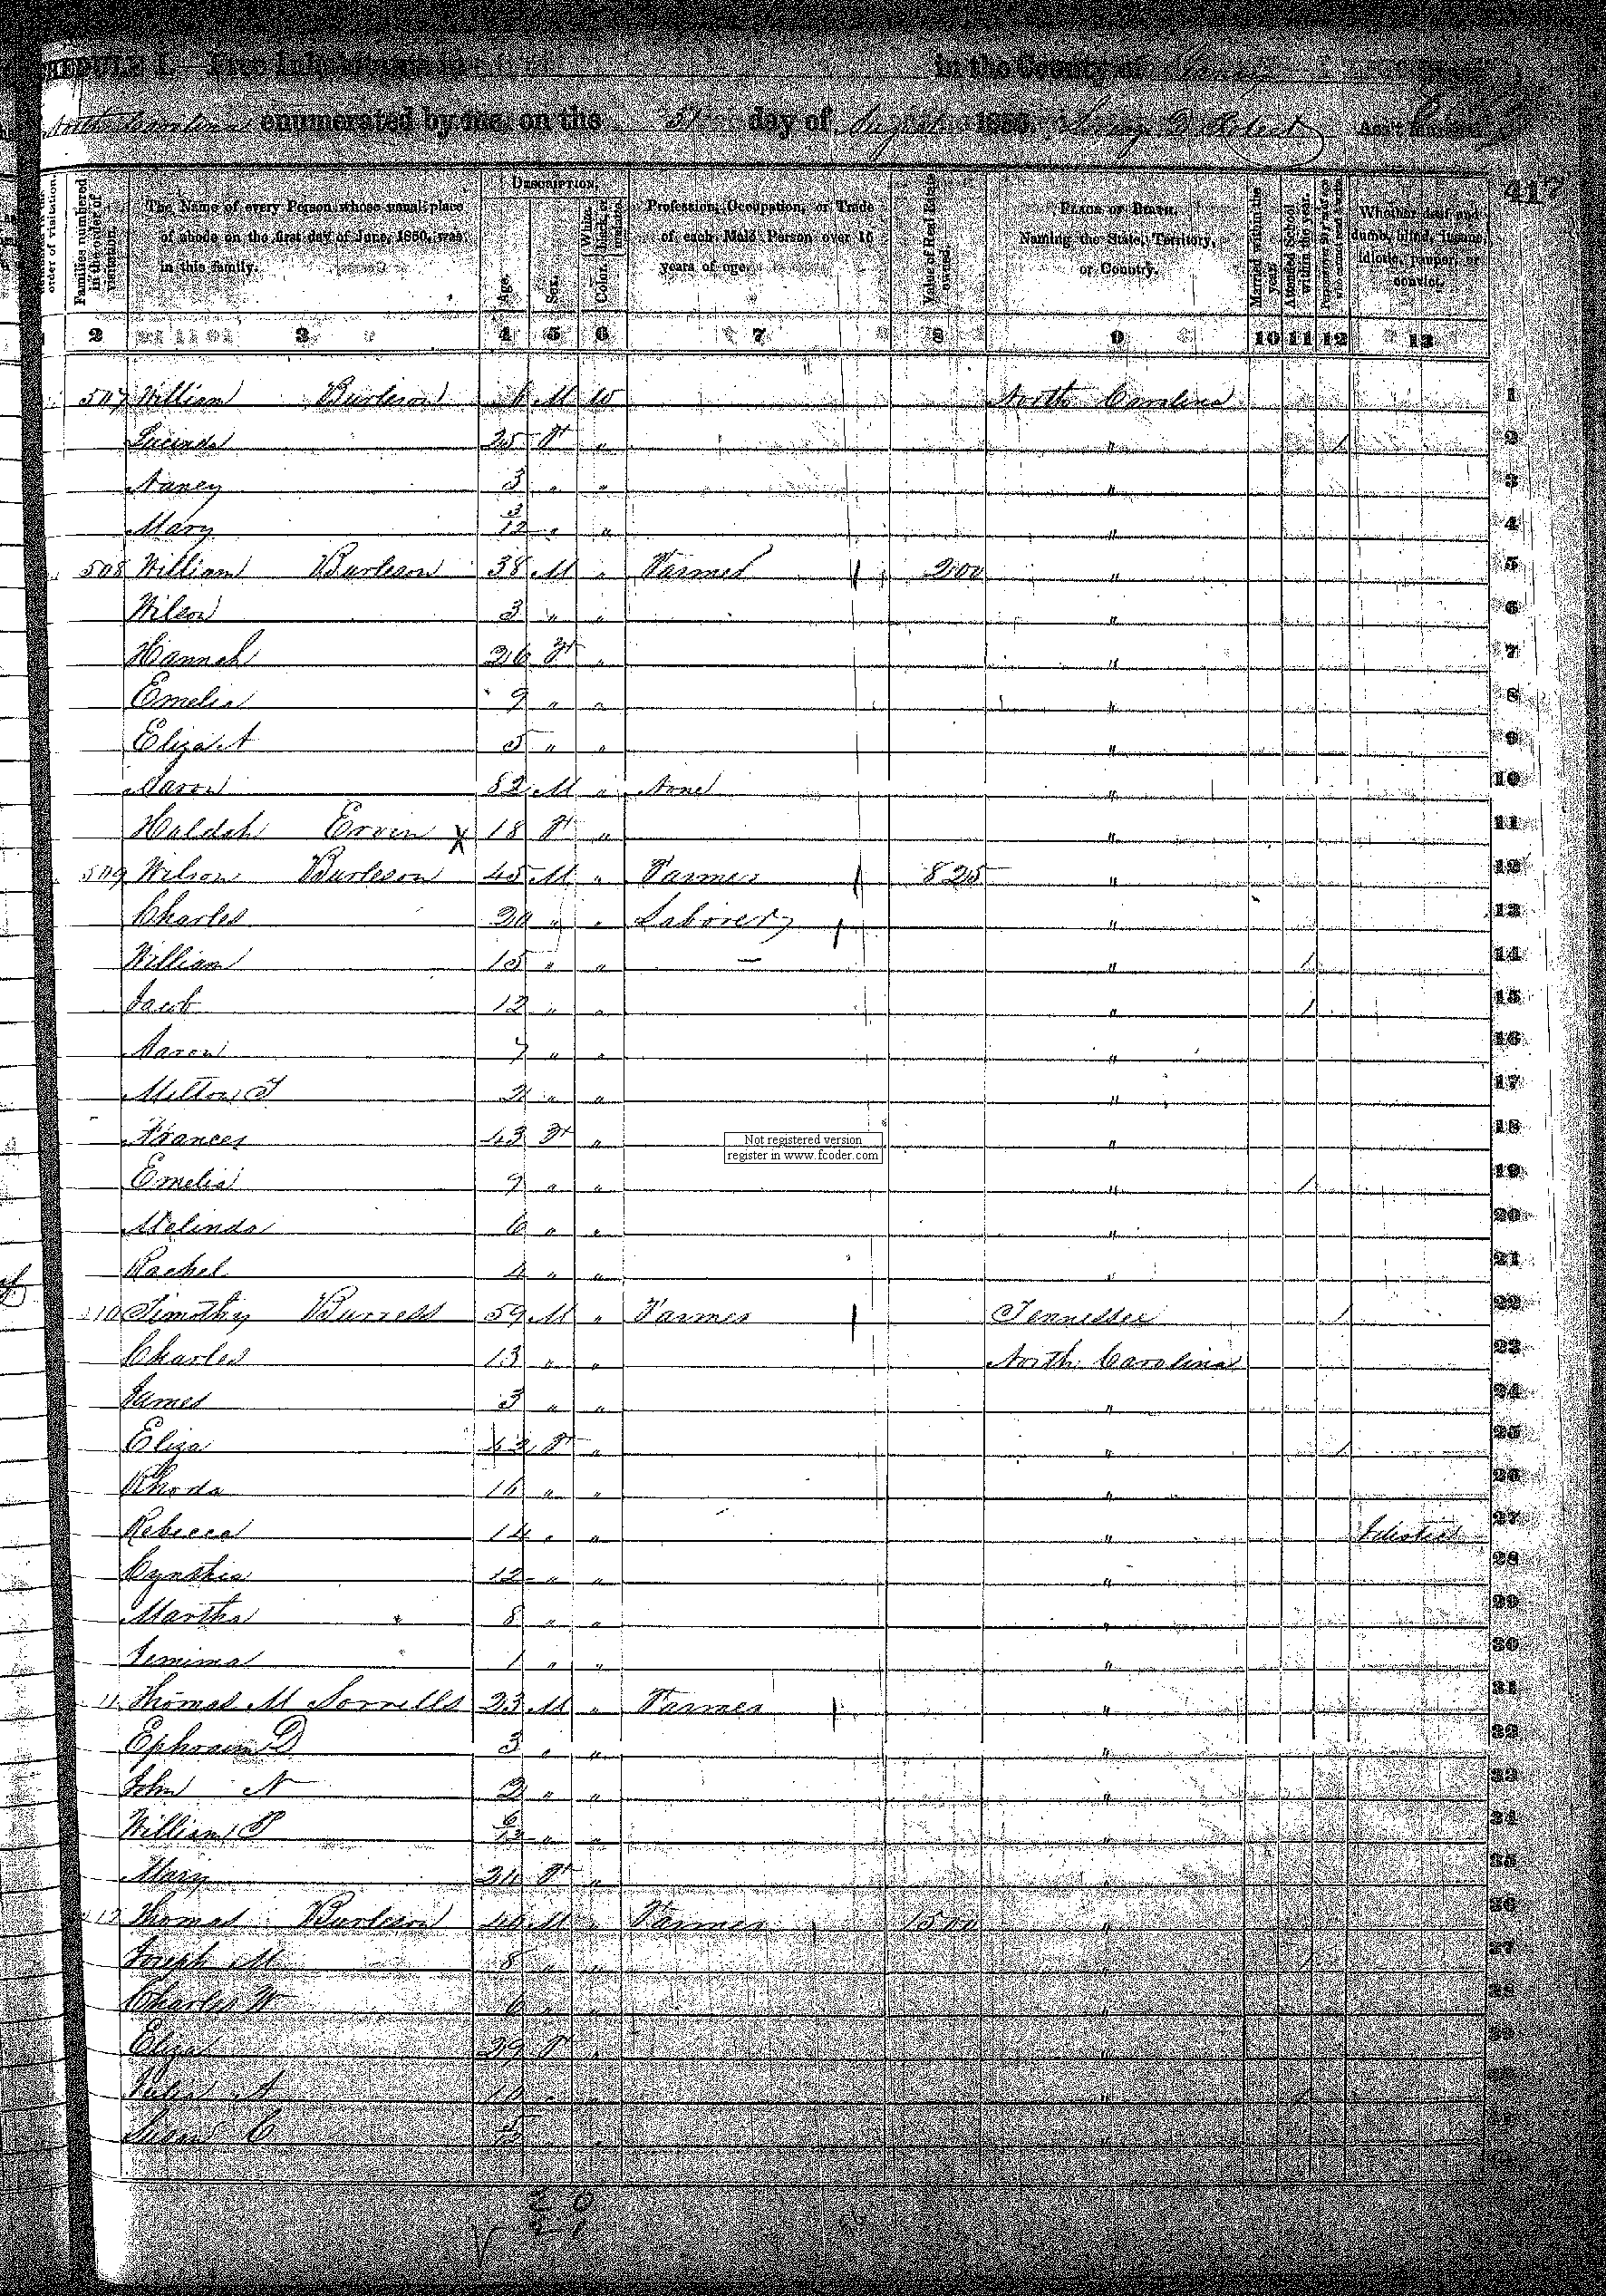 SCHEDULE I.—Free Inhabitants in in the County of
North Carolina enumerated by me, on the 31 day of August 1850. Ass't Marshal
417
DESCRIPTION.
Families numbered in the order of visitation.
The Name of every Person whose usual place of abode on the first day of June, 1850, was in this family.
Age.
Sex.
Color. White, black, or mulatto.
Profession, Occupation, or Trade of each Male Person over 15 years of age.
Value of Real Estate owned.
PLACE OF BIRTH. Naming the State, Territory, or Country.
Married within the year.
Attended School within the year.
Whether deaf and dumb, blind, insane, idiotic, pauper, or convict.
2 3 4 5 6 7 8 9 10 11 12 13
507 William Burleson M W North Carolina 1
Lucinda 25 F " " 1 2
Nancy 3 " " " 3
Mary 3/12 " " " 4
508 William Burleson 38 M " Farmer 200 " 5
Wilson 3 " " " 6
Hannah 26 F " " 7
Emelia 9 " " " 8
Eliza A 5 " " " 9
Aaron 82 M " None " 10
Huldah Ervin X 18 F " " 11
509 Wilson Burleson 45 M " Farmer 825 " 12
Charles 20 " " Laborer " 13
William 15 " " — " 1 14
Jacob 12 " " " 1 15
Aaron 7 " " " 16
Milton J 2 " " " 17
Frances 43 F " " 18
Not registered version
register in www.fcoder.com
Emelia 9 " " " 1 19
Melinda 6 " " " 20
Rachel 4 " " " 21
510 Timothy Burress 59 M " Farmer Tennessee 1 22
Charles 13 " " North Carolina 23
James 3 " " " 24
Eliza 42 F " " 1 25
Rhoda 16 " " " 26
Rebecca 14 " " " Idiotic 27
Cynthia 12 " " " 28
Martha 8 " " " 29
Jemima 1 " " " 30
11 Thomas M Sorrells 23 M " Farmer " 31
Ephraim D 3 " " " 32
John N 2 " " " 33
William P 6/12 " " " 34
Mary 24 F " " 35
512 Thomas Burleson 40 M " Farmer 1500 " 36
Joseph M 8 " " " 1 37
Charles W 6 " " " 38
Eliza 29 F " " 39
Julia A 10 " " " 1
Susan C "